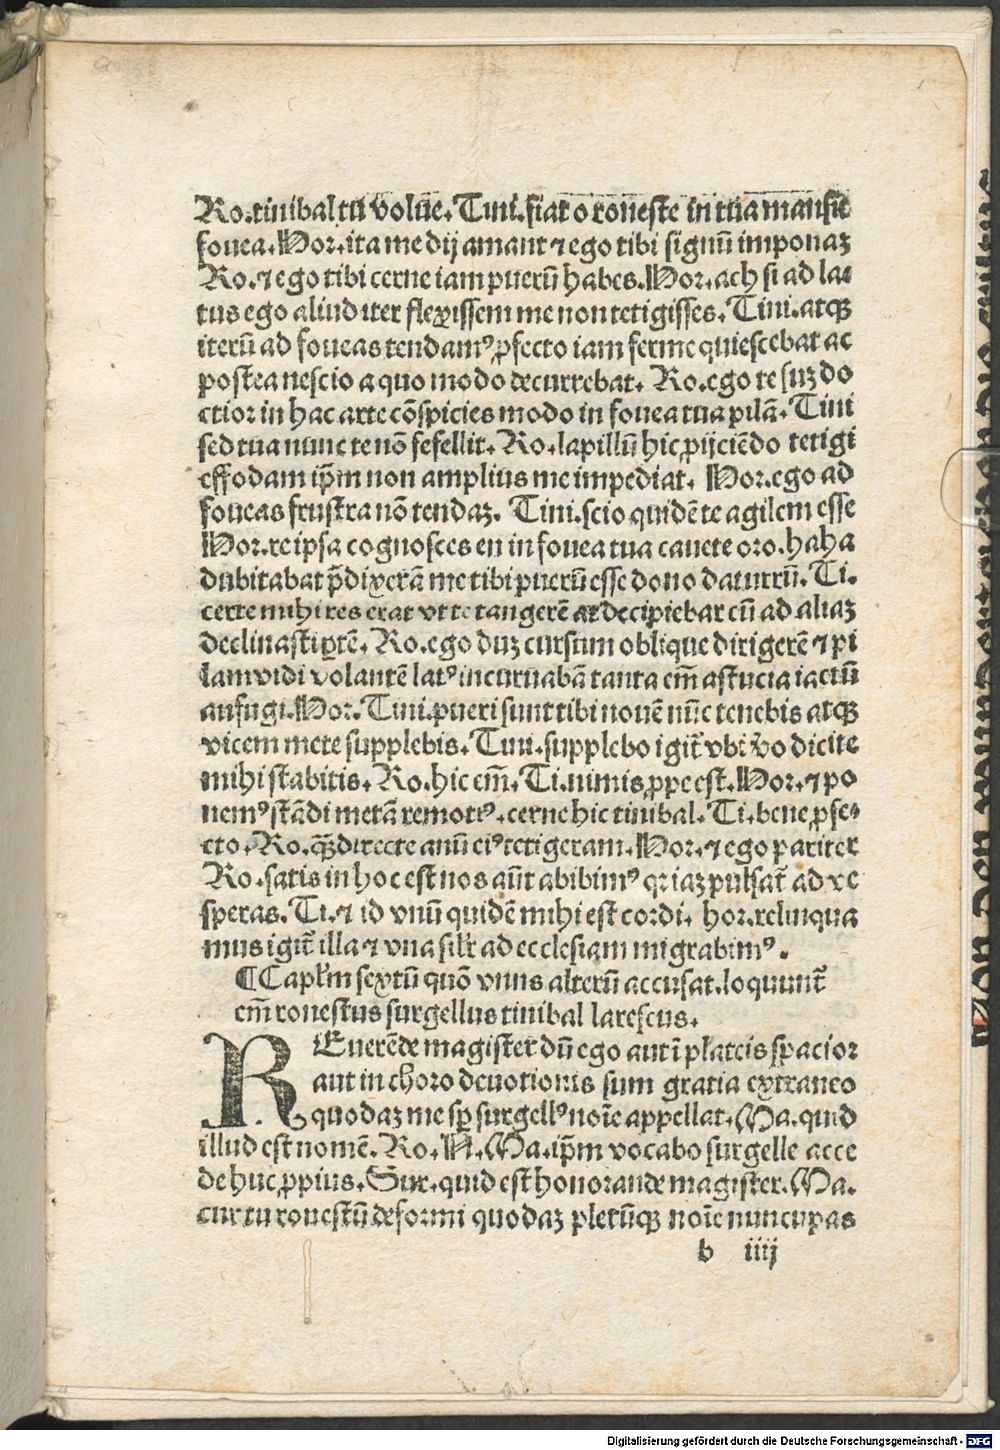 Ro.tinibal tu volue. Tini.fiat o roneste in tua mansit
fouea. Hor.ita me dij amant ⁊ ego tibi signū imponaꝫ
Ro.⁊ ego tibi cerne iam puerū habes. Hor.ach si ad la⸗
tus ego aliud iter flexissem me non tetigisses. Tini.atqꝫ
iterū ad foueas tendamꝰ ꝓfecto iam ferme quiescebat ac
postea nescio a quo modo decurrebat. Ro.ego te suꝫ do
ctior in hac arte cōspicies modo in fouea tua pilā. Tini
sed tua nunc te nō fefellit. Ro.lapillū hic ꝓijciēdo tetigi
effodam ip̄m non amplius me impediat. Hor.ego ad
foueas frustra nō tendaꝫ. Tini.scio quidē te agilem esse
Hor.re ipsa cognosces en in fouea tua cauete oro.haha
dubitabat p̄dixerā me tibi puerū esse dono daturrū. Ti.
certe mihi res erat vt te tangerē at decipiebar cū ad aliaꝫ
declinasti ꝑtē. Ro.ego duꝫ cursum oblique dirigerē ⁊ pi
lam vidi volantē latꝰ incuruabā tanta em̄ astucia iactū
aufugi. Hor. Tini.pueri sunt tibi nouē nūc tenebis atqꝫ
vicem mete supplebis. Tini.supplebo igit̄ vbi v̄o dicite
mihi stabitis. Ro.hic em̄. Ti.nimis ꝓpe est. Hor.⁊ po
nemꝰ stādi metā remotꝰ.cerne hic tinibal. Ti.bene ꝓfe⸗
cto. Ro.qꝫ̄ directe anū eiꝰ tetigeram. Hor.⁊ ego pariter
Ro.satis in hoc est nos aūt abibimꝰ qꝛ iaꝫ pulsat̄ ad ve
speras. Ti.⁊ id vnū quidē mihi est cordi. hor.relinqua
mus igit̄ illa ⁊ vna sil̄r ad ecclesiam migrabimꝰ.
¶ Capl̄m sextū quō vnus alterū accusat.loquunt̄
em̄ ronestus surgellus tinibal larescus.
REuerēde magister dn̄ ego aut ī plateis spacior
aut in choro deuotionis sum gratia extraneo
quodaꝫ me sꝑ surgellꝰ noīe appellat. Ma.quid
illud est nomē. Ro.N. Ma.ip̄m vocabo surgelle acce
de huc ꝓpius. Sur.quid est honorande magister. Ma.
cur tu ronestū deformi quodaꝫ pletūqꝫ noīe nuncupas
b iiij
Digitalisierung gefördert durch die Deutsche Forschungsgemeinschaft - DFG